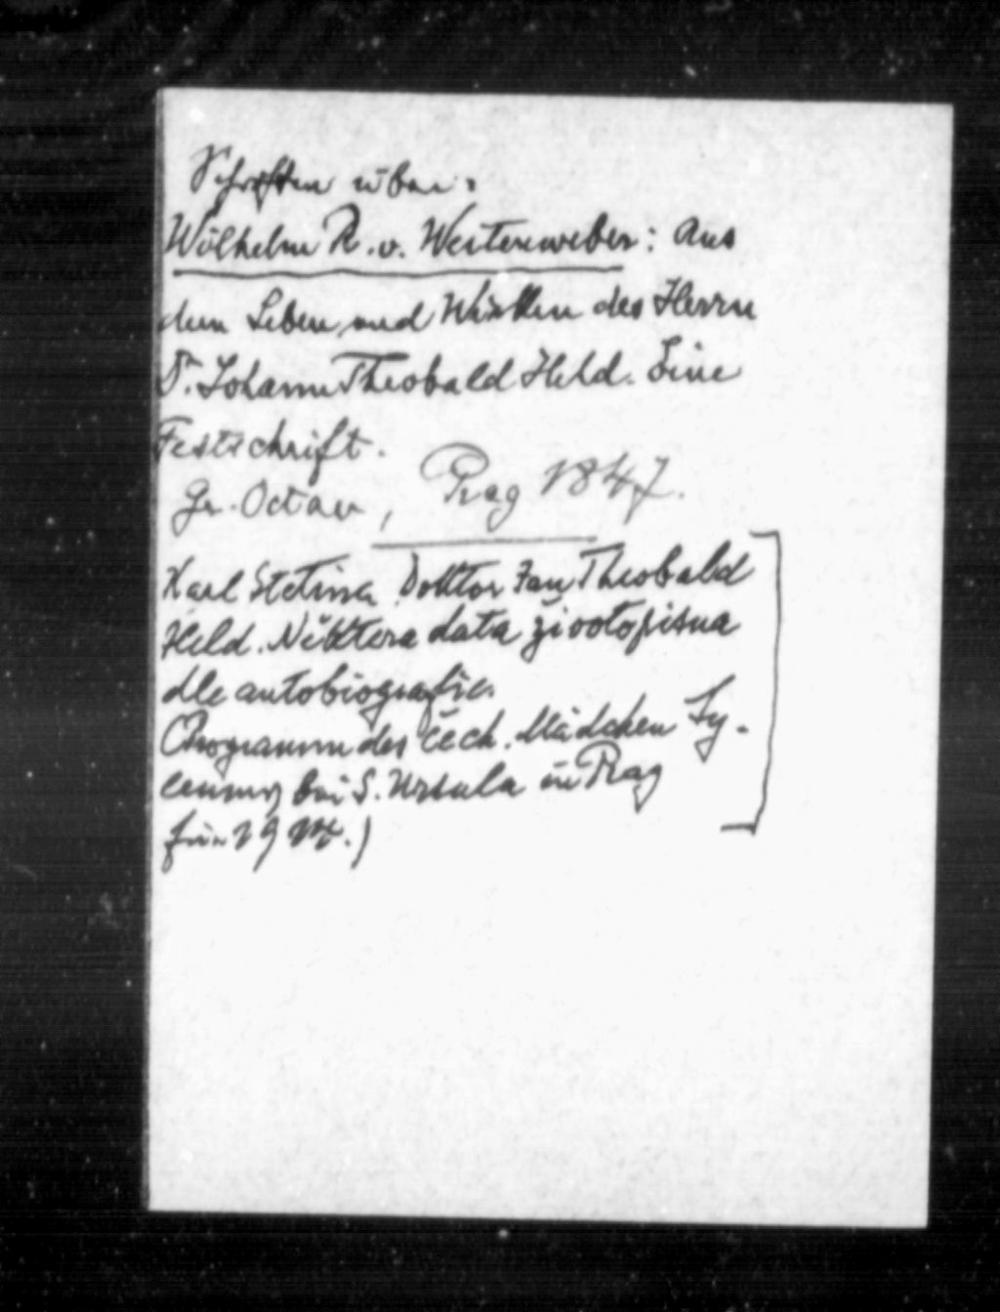 Schriften über:
Wilhelm R. v. Weitenweber: Aus
dem Leben und Wirken des Herrn
Dr. Johann Theobald Held. Eine
Festschrift.
Gr. Octav, Prag 1847.
Karl Stetina Doktor Jan Theobald
Held. Některa data životopisna
dle autobiografie.
(Programm des čech. Mädchen Ly-
ceums bei S. Ursula in Prag
für 19)